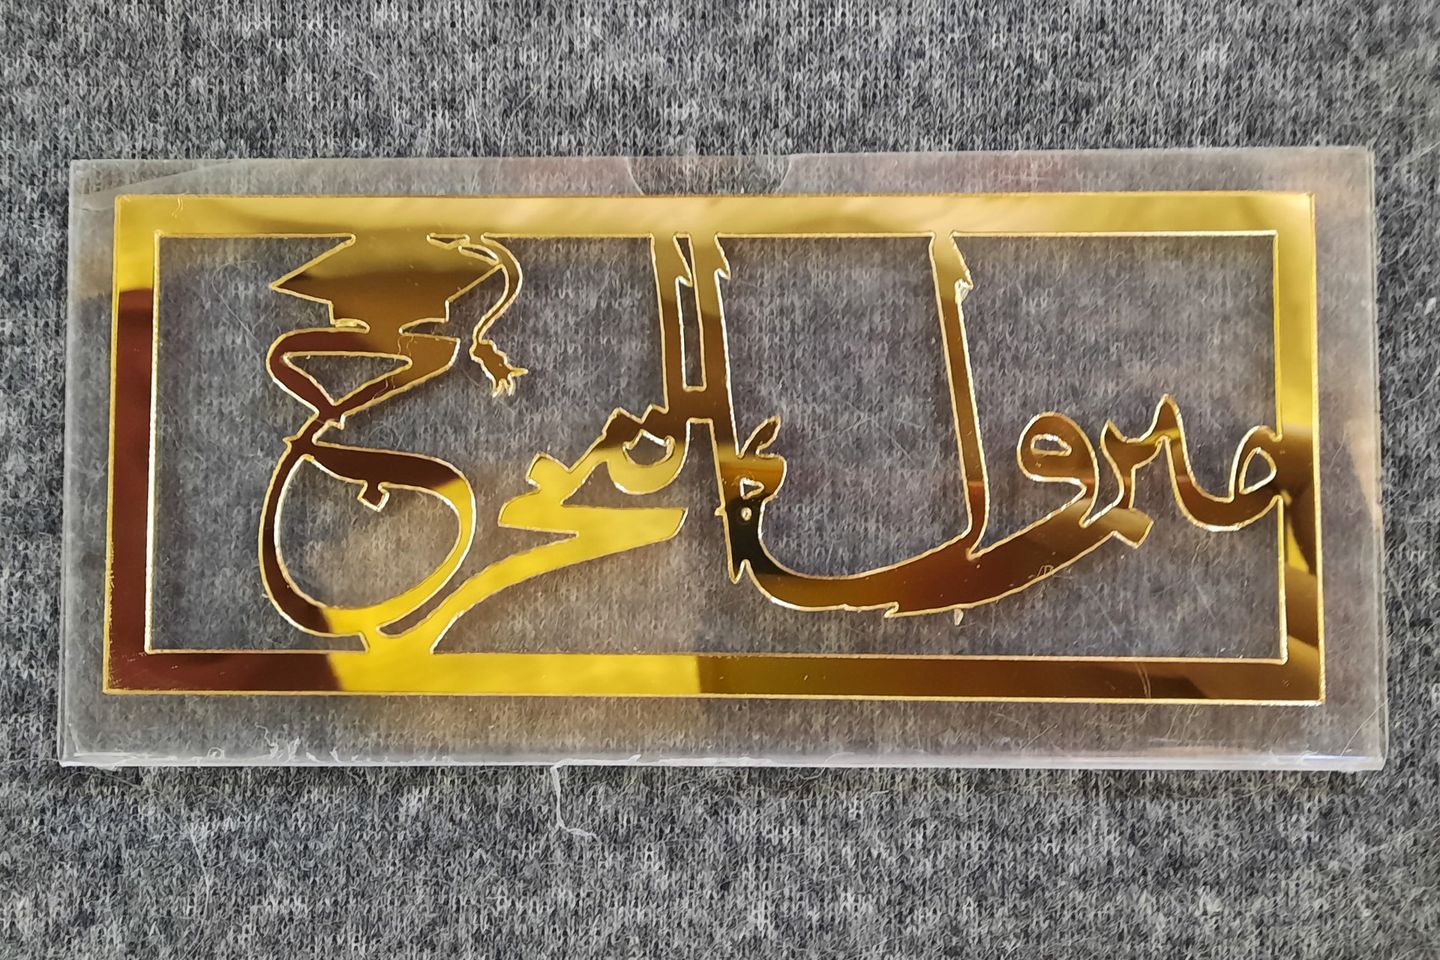 مبروك التخرج